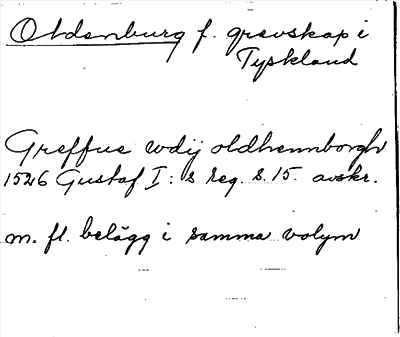 Oldenburg f. grevskap i
Tyskland
Greffue wdij oldhennborgh
1526 Gustaf I:s reg. s. 15. avskr.
m. fl. belägg i samma volym